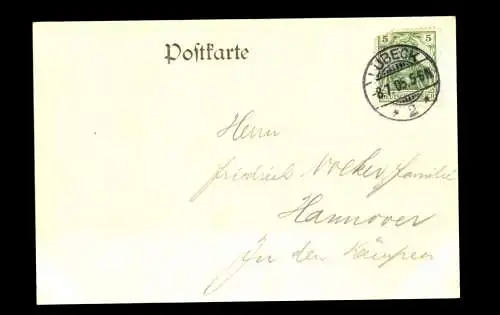 Postkarte
5 5
LÜBECK
-8.1.05.5-6N.
* 2 *
Herrn
Friedrich Volker, Familie
Hannover
In den Kämpen